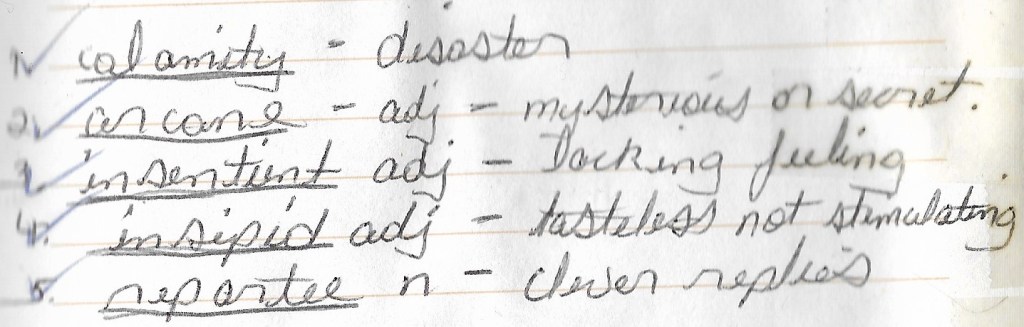 1. calamity - disaster
2. arcane - adj - mysterious or secret.
3. insentient adj - Lacking feeling
4. insipid adj - tasteless not stimulating
5. repartee n - clever replies